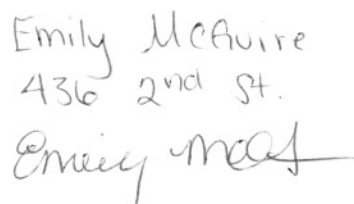 Emily McGuire
436 2nd St.
Emily